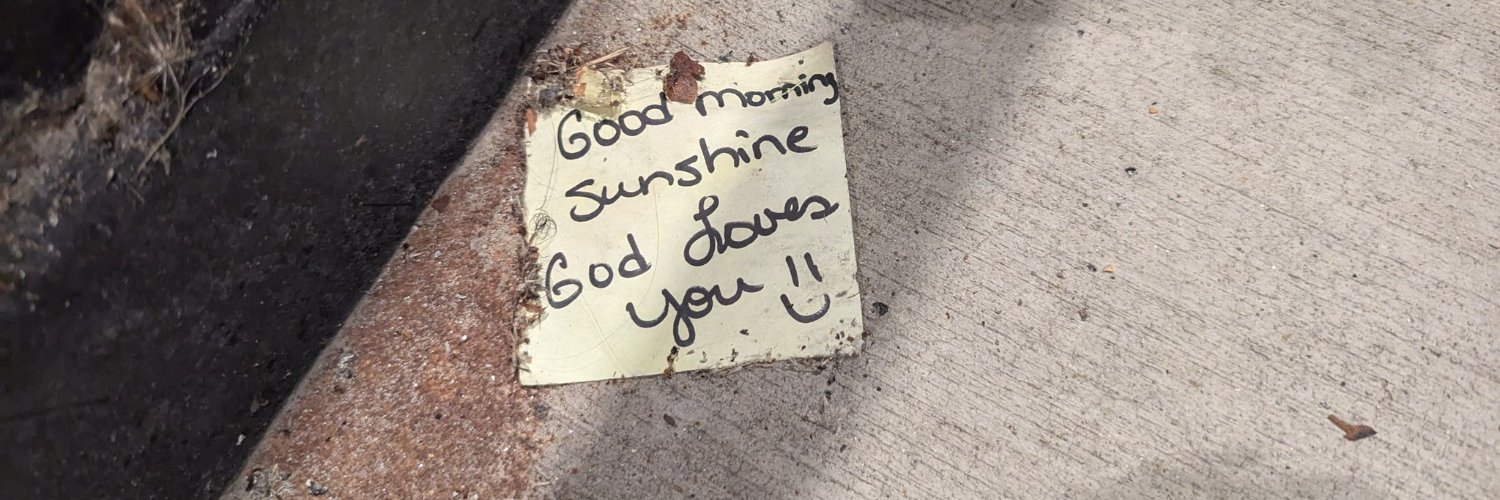 Good morning
sunshine
God Loves
you !!